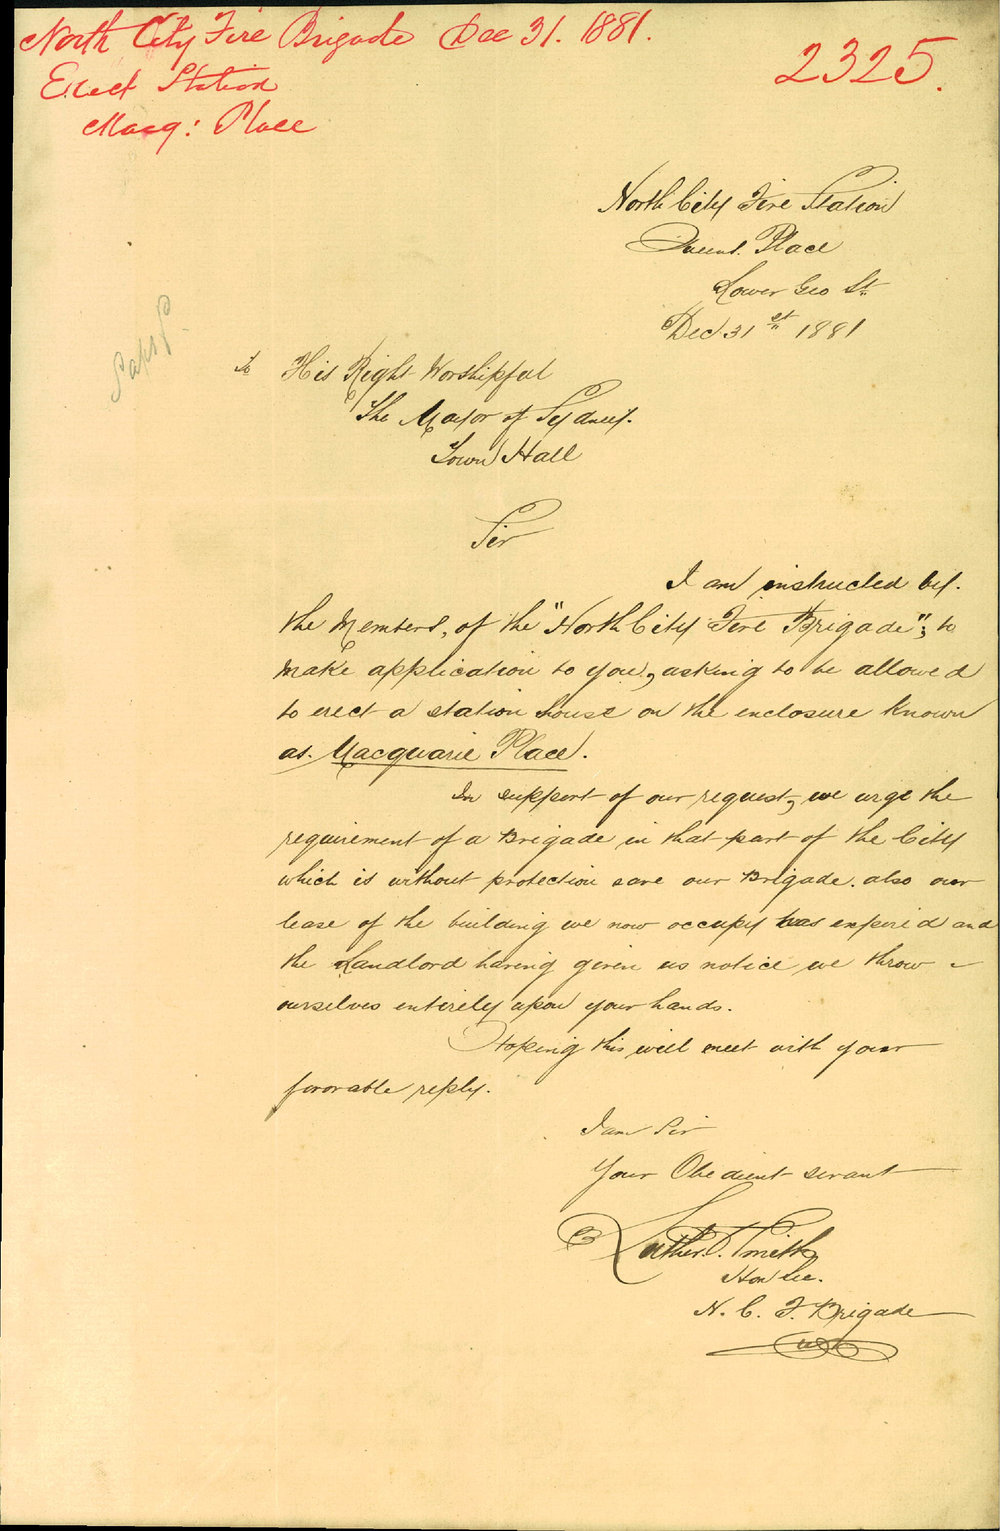 North City Fire Brigade Dec 31. 1881.
2325.
Erect Station
Macq: Place
North City Fire Station
Queens. Place
Lower Geo St.
Dec 31st 1881
To His Right Worshipful
The Mayor of Sydney.
Town Hall
Sir
I am instructed by.
the Members, of the "North City Fire Brigade"; to
make application to you, asking to be allowed
to erect a station house on the enclosure known
as. Macquarie Place.
In support of our request, we urge the
requirement of a Brigade in that part of the City
which is without protection save our Brigade. also our
lease of the building we now occupy has expired and
the Landlord having given us notice we throw -
ourselves entirely upon your hands.
Hoping this will meet with your
favorable reply.
I am Sir
Your Obedient servant
Luther. Smith
Hon Sec.
N. C. F. Brigade